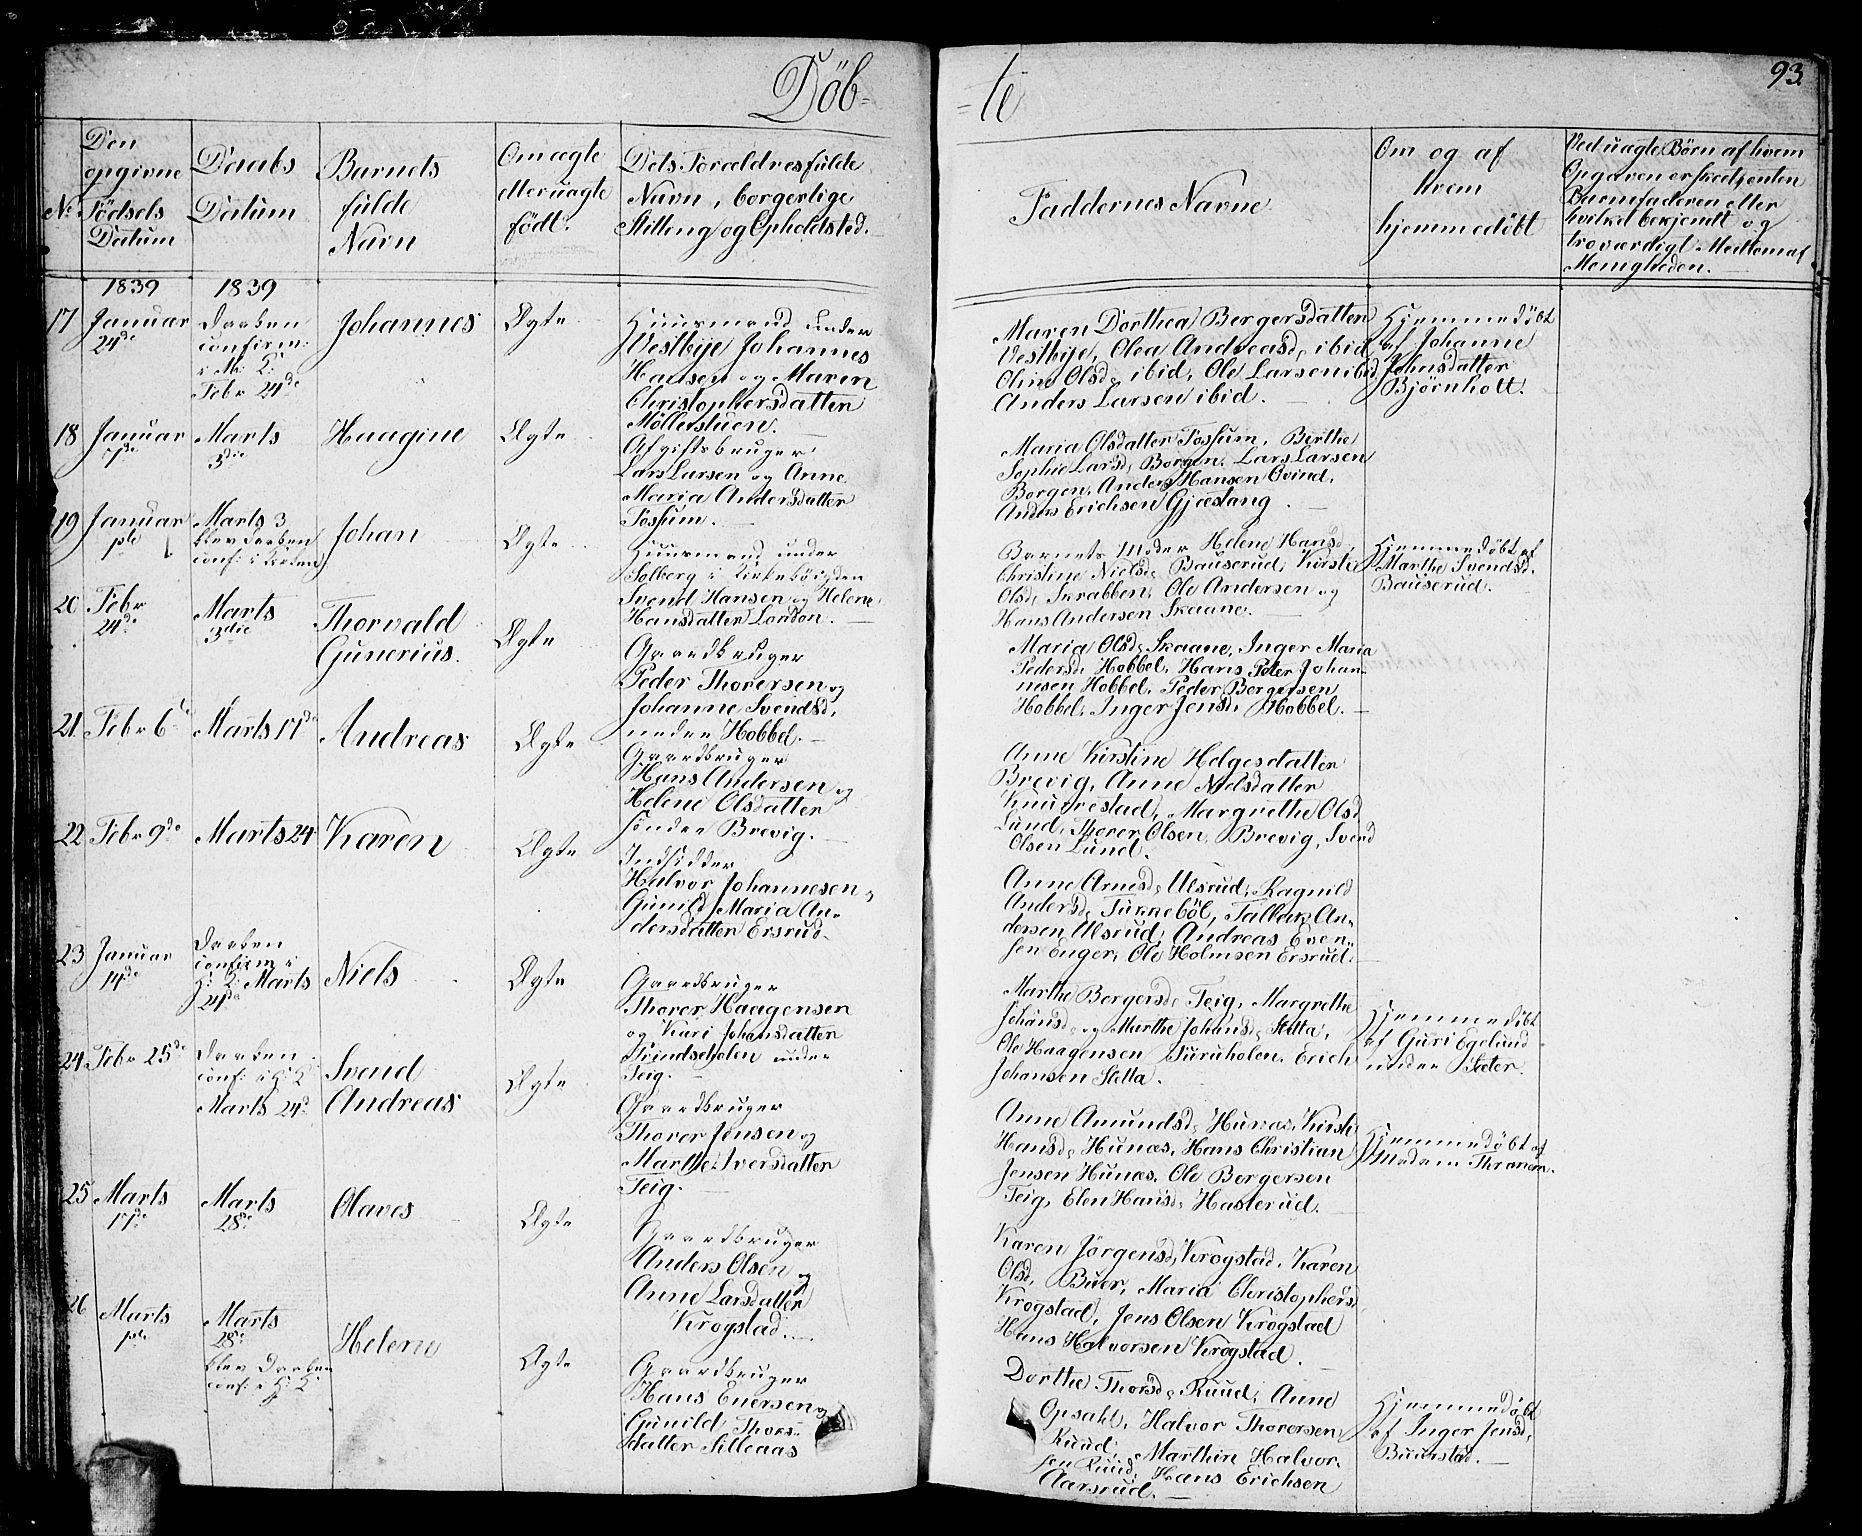 Döb=
=te
93.
No
Den
opgivne
Födsels
Datum
Daabs
Datum
Barnets
fulde
Navn
Om ægte
eller uægte
født.
Dets Forældres fulde
Navn, borgerlige
Stilling og Opholdsted.
Faddernes Navne
Om og af
hvem
hjemmedöbt
Ved uagte Börn af hvem
Opgaven er skedt, enten
Barnefaderen eller
hvilket bekjendt og
troværdigt Medlem af
Menigheden.
1839
1839
17
Januar
24de
Daaben
confirm:
i
Febr 24de
Johannes
Ægte
Huusmand under
Vestbye Johannes
Hansen og Maren
Christophersdatter
Möllerstuen.
Maren Dorthea Bergersdatter
Vestbye, Olea Andreasd. ibid
Oline Olsd. ibid, Ole Larsen ibid
Anders Larsen ibid.
Hjemmedöbt
af Johanne
Johnsdatter
Björnholt.
18
Januar
7de
Marts
3die
Haagine
Ægte
Afgiftsbruger
Lars Larsen og Anne
Maria Andersdatter
Fossum.
Maria Olsdatter Fossum, Birthe
Sophie Larsd. Borgen, Lars Larsen
Borgen, Anders Hansen Qvind,
Anders Erichsen Gjæstang.
19
Januar
1ste
Marts 3
blev Daaben
conf: i Kirken
Johan
Ægte
Huusmand under
Solberg i Kirkeböigden
Svend Hansen og Helene
Hansdatter London.
Barnets Moder Helene Hansd.
Christine Nielsd. Bauserud, Kirstie
Olsd. Skrabben, Ole Andersen og
Hans Andersen Skaane.
Hjemmedöbt af
Marthe Svendsd.
Bauserud.
20
Febr
24de
Marts
3die
Thorvald
Gunerius.
Ægte
Gaardbruger
Peder Thorersen og
Johanne Svendsd.
neder Hobbel.
Maria Olsd. Skaane, Inger Maria
Pedersd. Hobbel, Hans Peter Johan-
nesen Hobbel, Peder Bergersen
Hobbel, Inger Jensd. Hobbel.
21
Febr 6te
Marts 17de
Andreas
Ægte
Gaardbruger
Hans Andersen og
Helene Olsdatter
söndre Brevig.
Anne Kirstine Helgesdatter
Brevig, Anne Nielsdatter
Knugrestad, Margrethe Olsd
Lund, Thorer Olsen, Brevig, Svend
Olsen Lund.
22
Febr 9de
Marts 24
Karen
Ægte
Indsidder
Halvor Johannesen og
Gunild Maria An-
dersdatter Ersrud.
Anne Arnesd. Ulsrud, Ragnild
Andersd. Turneböl, Tallak An-
dersen Ulsrud, Andreas Even-
sen Enger, Ole Holmsen Ersrud.
23
Januar
14de
Daaben
confirm i
H: K: Marts
24de
Niels
Ægte
Gaardbruger
Thorer Haagensen
og Kari Johansdatter
Trindseholen under
Teig.
Marthe Bergersd. Teig, Margrethe
Johansd. og Marthe Johansd. Sletta,
Ole Haagensen Furuholen, Erich
Johansen Sletta.
Hjemmedöbt
af Guri Egelund
under Sæter.
24
Febr 25de
Daaben
conf: i H: K
Marts 24d
Svend
Andreas
Ægte
Gaardbruger
Thorer Jensen og
Marthe Iversdatter
Teig.
Anne Amundsd. Hunæs, Kirsti
Hansd. Hunæs, Hans Christian
Jensen Hunæs, Ole Bergersen
Teig, Elen Hansd. Hasterud.
Hjemmedöbt af
Madam Thranem.
25
Marts
17de
Marts
28de
Olaves
Ægte
Gaardbruger
Anders Olsen og
Anne Larsdatter
Krogstad.
Karen Jörgensd. Krogstad, Karen
Olsd. Buer, Maria Christophersd.
Krogstad, Jens Olsen Krogstad
Hans Halvorsen Krogstad.
26
Marts
1ste
Marts
28de
blev Daaben
conf: i H: K
Helene
Ægte
Gaardbruger
Hans Enersen og
Gunild Thors-
datter Silleaas
Dorthe Thorsd. Ruud, Anne
Opsahl, Halvor Thorersen
Ruud, Marthin Halvor-
sen Ruud, Hans Erichsen
Aarsrud.
Hjemmedöbt
af Inger Jensd.
Buerstad.